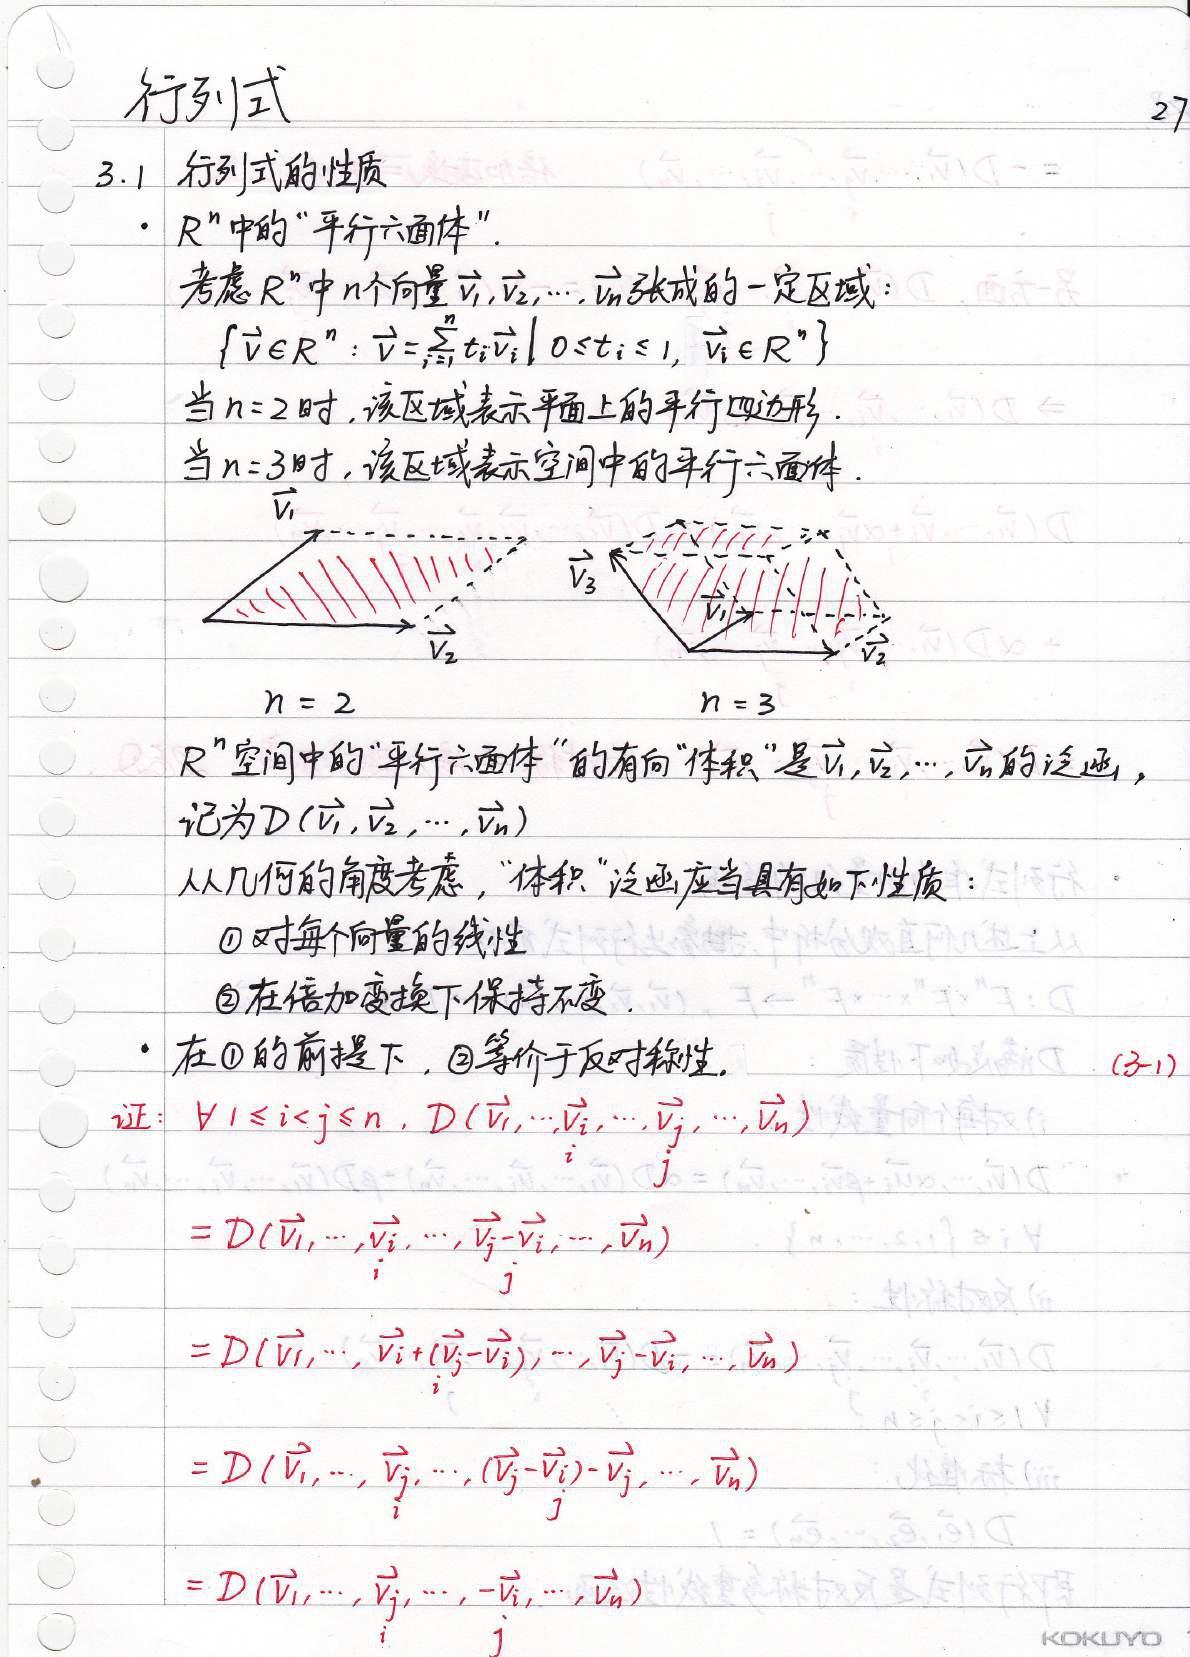 行列式
27
3.1 行列式的性质
· Rⁿ中的“平行六面体”.
考虑Rⁿ中n个向量 v⃗₁, v⃗₂, ⋯, v⃗ₙ张成的一定区域:
{v⃗∈Rⁿ : v⃗=∑ᵢ₌₁ⁿ tᵢv⃗ᵢ | 0≤tᵢ≤1, v⃗ᵢ∈Rⁿ}
当n=2时,该区域表示平面上的平行四边形.
当n=3时,该区域表示空间中的平行六面体.
v⃗₁ v⃗₂
v⃗₃ v⃗₁ v⃗₂
n = 2 n = 3
Rⁿ空间中的“平行六面体”的有向“体积”是v⃗₁, v⃗₂, ⋯, v⃗ₙ的泛函,
记为D(v⃗₁, v⃗₂, ⋯, v⃗ₙ)
从几何的角度考虑,“体积”泛函应当具有如下性质:
①对每个向量的线性
②在倍加变换下保持不变.
· 在①的前提下,②等价于反对称性. (3-1)
证: ∀ 1≤i<j≤n, D(v⃗₁, ⋯, v⃗ᵢ, ⋯, v⃗ⱼ, ⋯, v⃗ₙ)
i j
= D(v⃗₁, ⋯, v⃗ᵢ, ⋯, v⃗ⱼ-v⃗ᵢ, ⋯, v⃗ₙ)
i j
= D(v⃗₁, ⋯, v⃗ᵢ+(v⃗ⱼ-v⃗ᵢ), ⋯, v⃗ⱼ-v⃗ᵢ, ⋯, v⃗ₙ)
i
= D(v⃗₁, ⋯, v⃗ⱼ, ⋯, (v⃗ⱼ-v⃗ᵢ)-v⃗ⱼ, ⋯, v⃗ₙ)
i j
= D(v⃗₁, ⋯, v⃗ⱼ, ⋯, -v⃗ᵢ, ⋯, v⃗ₙ)
i j
KOKUYO